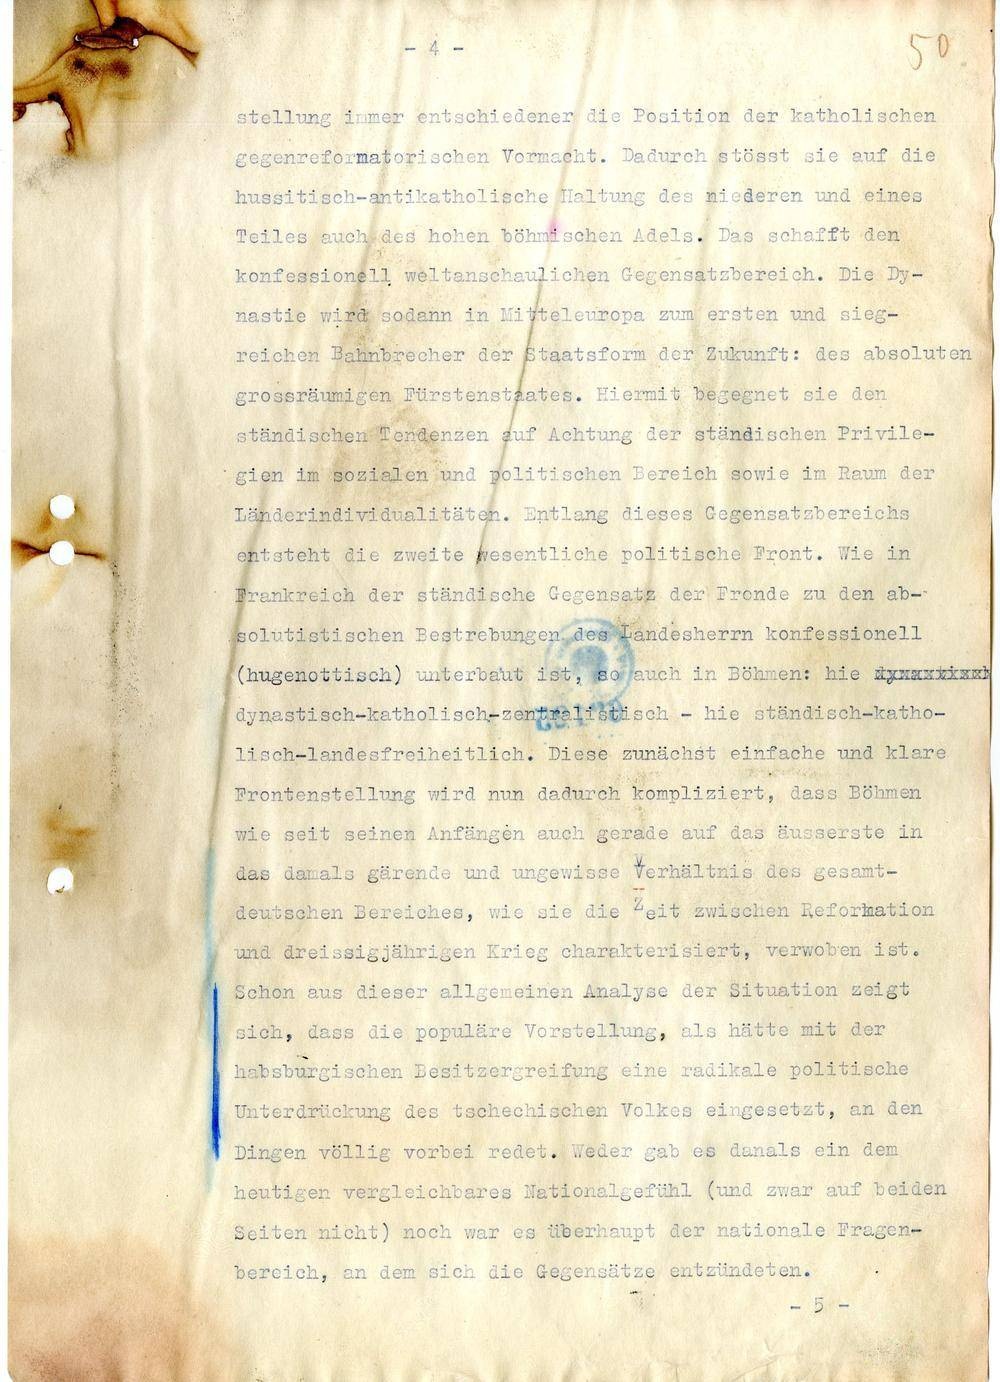 - 4 -
50
stellung immer entschiedener die Position der katholischen
gegenreformatorischen Vormacht. Dadurch stösst sie auf die
hussitisch-antikatholische Haltung des niederen und eines
Teiles auch des hohen böhmischen Adels. Das schafft den
konfessionell weltanschaulichen Gegensatzbereich. Die Dy-
nastie wird sodann in Mitteleuropa zum ersten und sieg-
reichen Bahnbrecher der Staatsform der Zukunft: des absoluten
grossräumigen Fürstenstaates. Hiermit begegnet sie den
ständischen Tendenzen auf Achtung der ständischen Privile-
gien im sozialen und politischen Bereich sowie im Raum der
Länderindividualitäten. Entlang dieses Gegensatzbereichs
entsteht die zweite wesentliche politische Front. Wie in
Frankreich der ständische Gegensatz der Fronde zu den ab-
solutistischen Bestrebungen des Landesherrn konfessionell
(hugenottisch) unterbaut ist, so auch in Böhmen: hie
dynastisch-katholisch-zentralistisch - hie ständisch-katho-
lisch-landesfreiheitlich. Diese zunächst einfache und klare
Frontenstellung wird nun dadurch kompliziert, dass Böhmen
wie seit seinen Anfängen auch gerade auf das äusserste in
das damals gärende und ungewisse Verhältnis des gesamt-
deutschen Bereiches, wie sie die Zeit zwischen Reformation
und dreissigjährigen Krieg charakterisiert, verwoben ist.
Schon aus dieser allgemeinen Analyse der Situation zeigt
sich, dass die populäre Vorstellung, als hätte mit der
habsburgischen Besitzergreifung eine radikale politische
Unterdrückung des tschechischen Volkes eingesetzt, an den
Dingen völlig vorbei redet. Weder gab es danals ein dem
heutigen vergleichbares Nationalgefühl (und zwar auf beiden
Seiten nicht) noch war es überhaupt der nationale Fragen-
bereich, an dem sich die Gegensätze entzündeten.
- 5 -